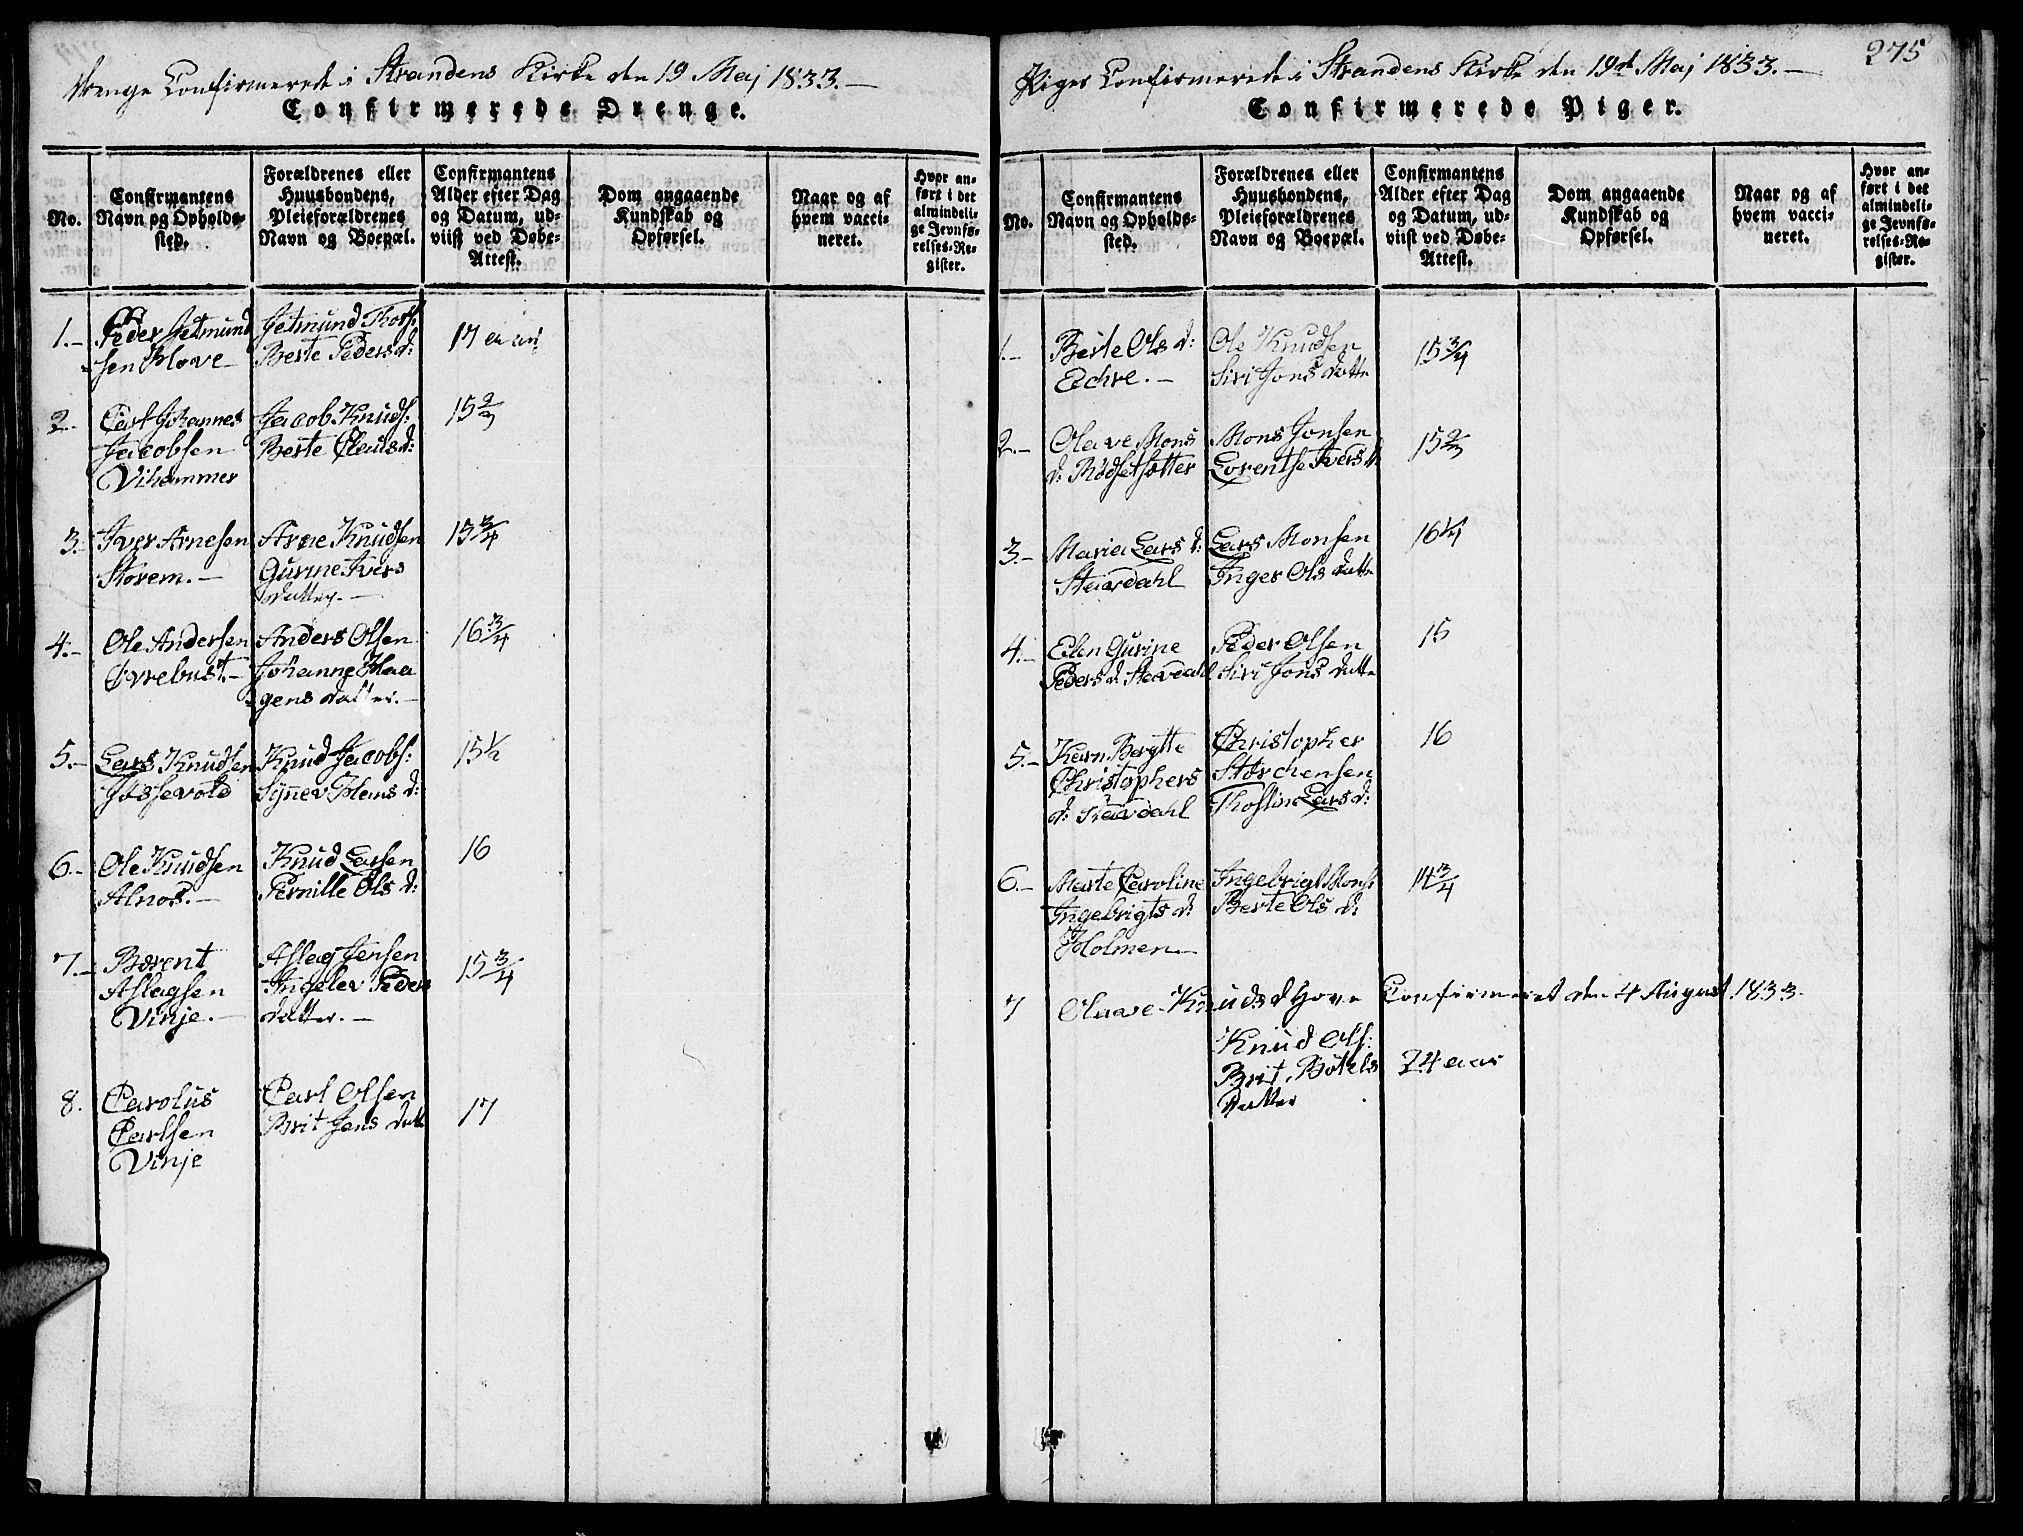 Drenge Confirmerede i Strandens Kirke den 19 Maj 1833.—
Confirmerede Drenge.
No.
Confirmantens
Navn og Opholds-
sted.
Forældrenes eller
Huusbondens,
Pleieforældrenes
Navn og Boepæl.
Confirmantens
Alder efter Dag
og Datum, ud-
viist ved Døbe-
Attest.
Dom angaaende
Kundskab og
Opførsel.
Naar og af
hvem vacci-
neret.
Hvor an-
ført i det
almindeli-
ge Jevnfø-
relses-Re-
gister.
1.- Peder Jetmund
sen Klove
Jetmund Thors:
Berte Peders d:
17
2. Carl Johannes
Jacobsen
Vihammer
Jacob Knuds:
Berte Claus d:
15 2/3
3. Iver Arnesen
Storem.—
Arne Knudsen
Gurine Ivers
datter.—
15 3/4
4.- Ole Andersen
Øvrebust.—
Anders Olsen
Johanne Haa
gens datter.—
16 3/4
5.- Lars Knudsen
Jøssevold
Knud Jacobs:
Synnev Hens d:
15 1/2
6.- Ole Knudsen
Alnos.—
Knud Larsen
Pernille Ols d:
16
7.- Berent
Aslagsen
Vinje.—
Aslag Jensen
Ingelev Peders
datter.—
15 3/4
8. Carolus
Carlsen
Vinje
Carl Olsen
Brit Jens datt
17
275
Piger Confirmerede i Strandens Kirke den 19d Maj 1833.—
Confirmerede Piger.
No.
Confirmantens
Navn og Opholds-
sted.
Forældrenes eller
Huusbondens,
Pleieforældrenes
Navn og Boepæl.
Confirmantens
Alder efter Dag
og Datum, ud-
viist ved Døbe-
Attest.
Dom angaaende
Kundskab og
Opførsel.
Naar og af
hvem vacci-
neret.
Hvor an-
ført i det
almindeli-
ge Jevnfø-
relses-Re-
gister.
1.- Berte Ols d:
Echre.—
Ole Knudsen
Siri Jons datte
15 3/4
2.- Olave Mons
d: Rødsetsætter
Mons Jonsen
Lorentse Ivers d:
15 2/3
3.- Maria Lars d:
Stavdahl
Lars Monsen
Inger Ols datte
16 1/4
4.- Elen Gurine
Peders d: Stavdahl
Peder Olsen
Siri Jons datte
15
5.- Karn Bergtte
Christophers
d: Stavdahl
Christopher
Størchensen
Thosline Lars d:
16
6.- Marte Caroline
Ingebrigts d:
Holmen—
Ingebrigt Mons:
Berte Ols d:
14 3/4
7 Olave Knuds d Hove Confirmeret den 4 August 1833.
Knud Ols:
Brit Botels
datter
24 aar